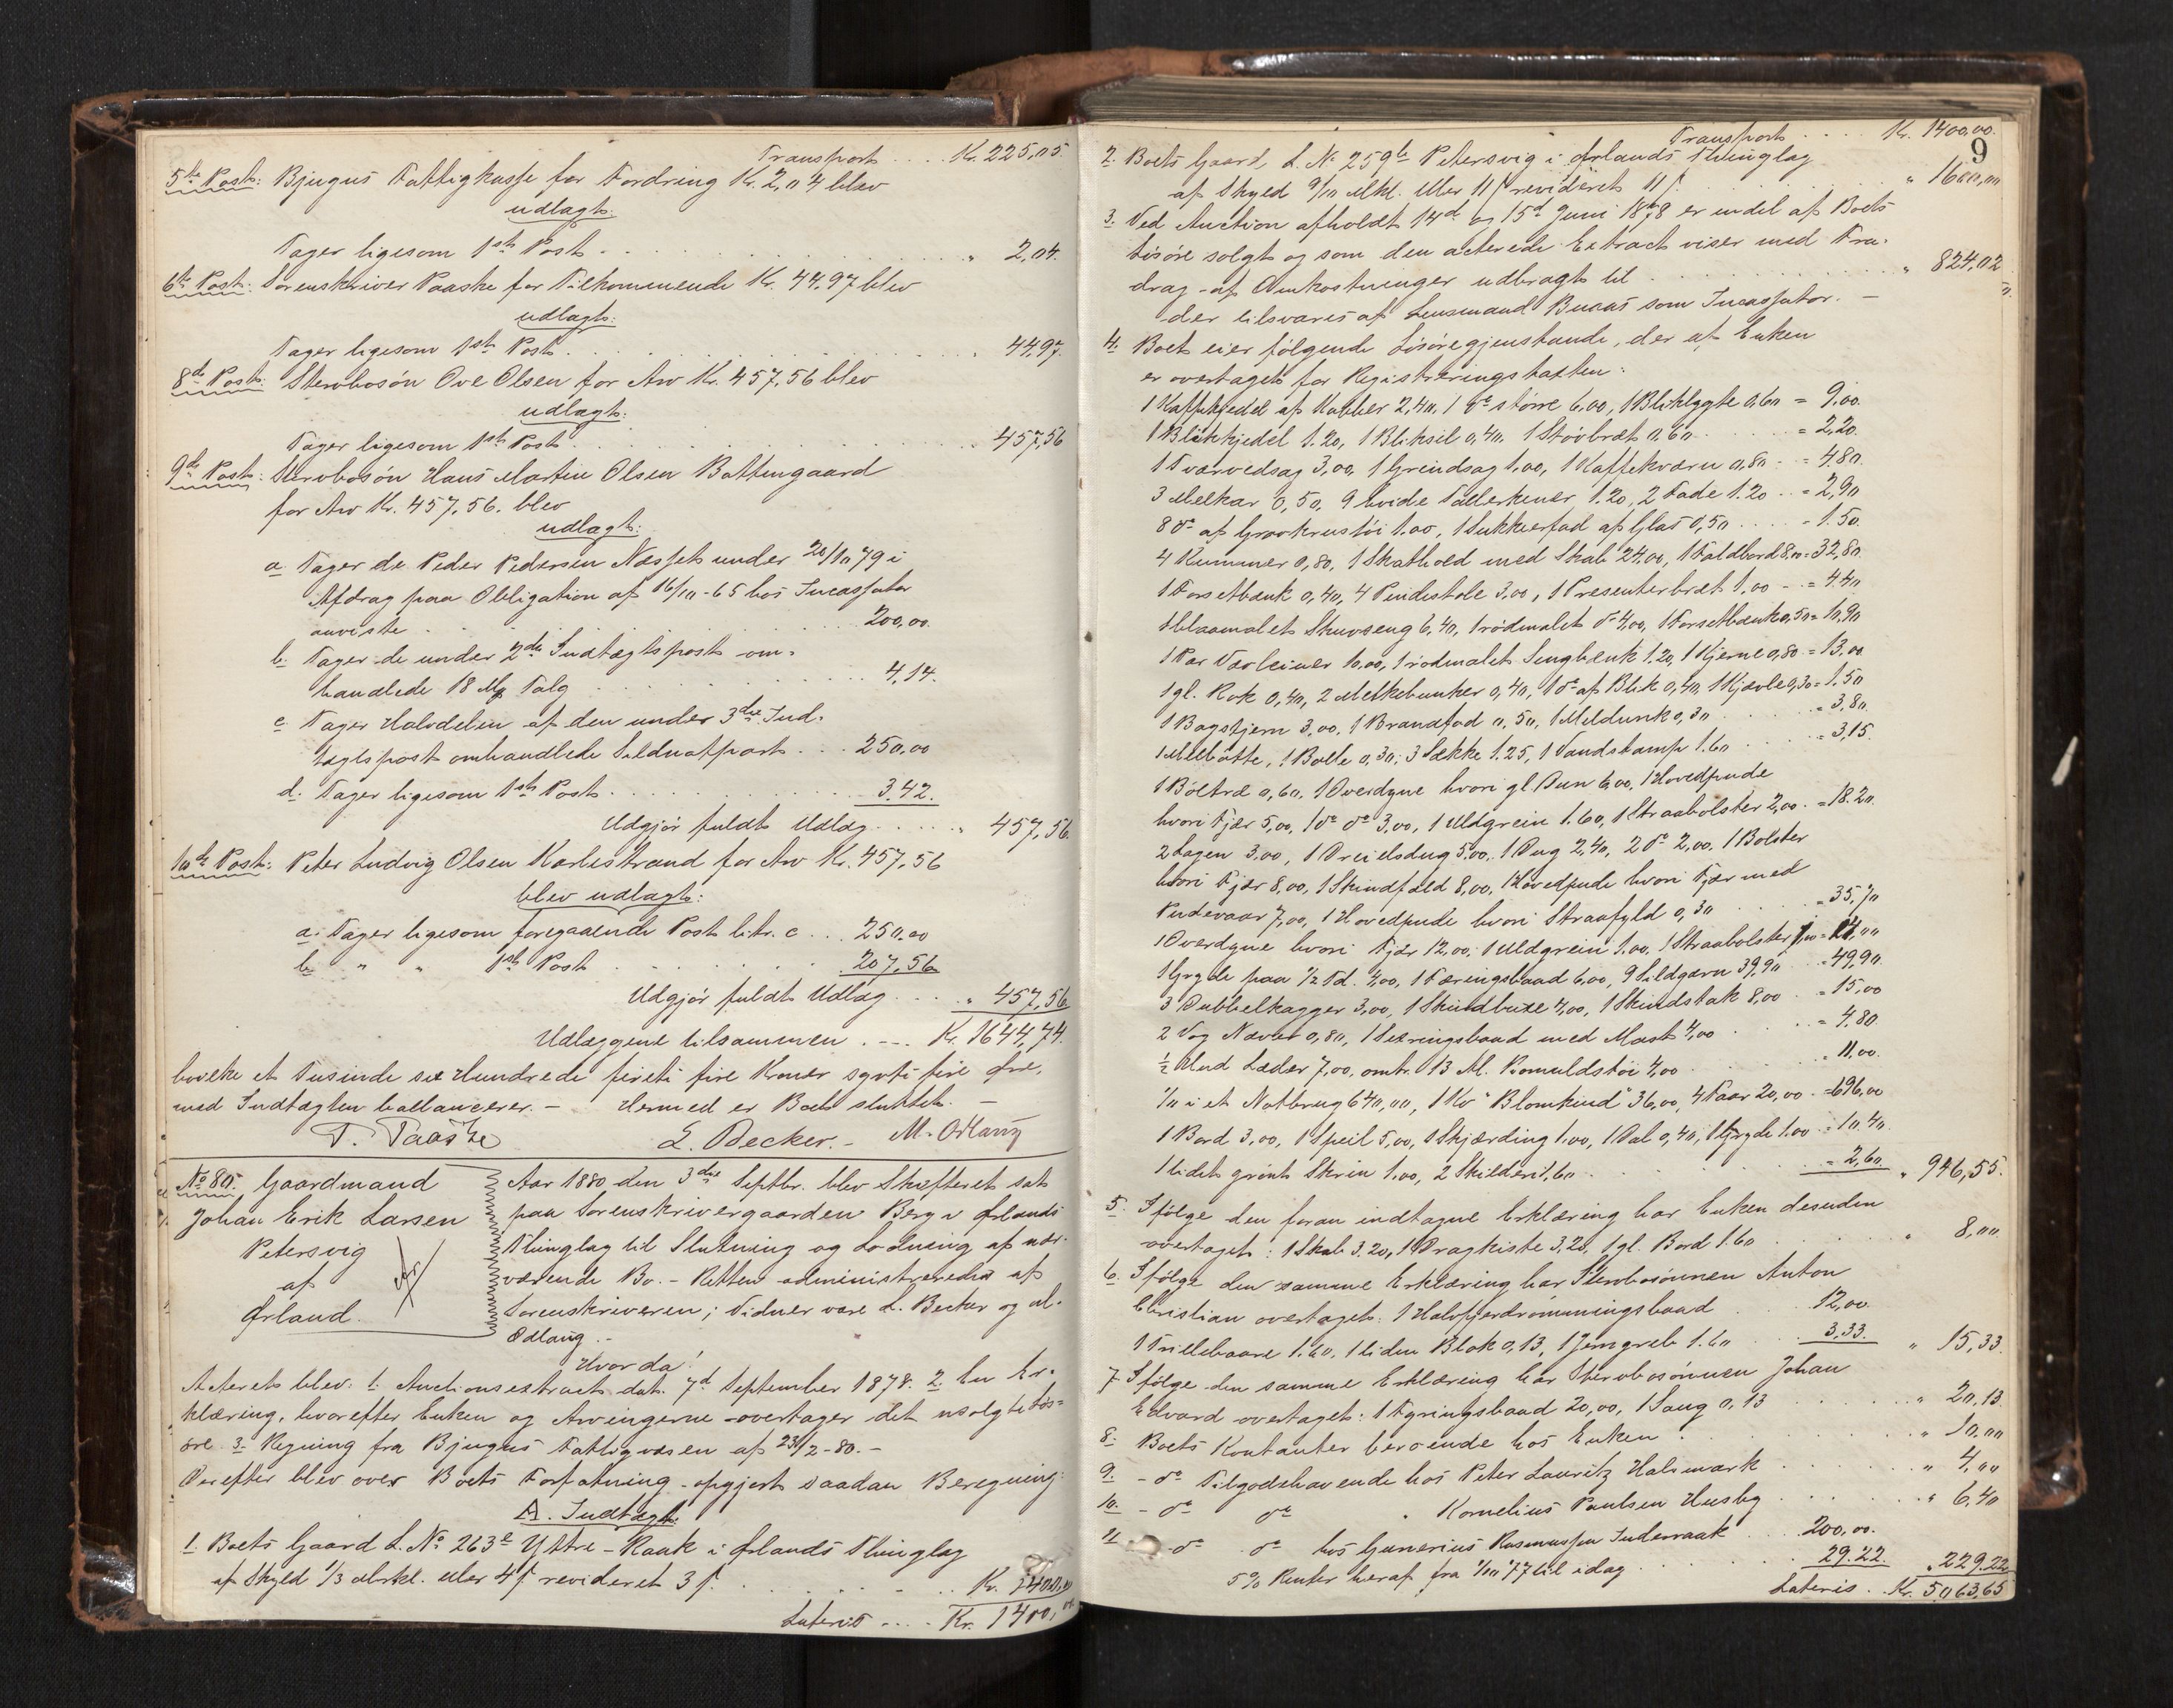 Transport .... Kr. 225,05.
5te Post: Bjugns Fattigkasse for Fordring Kr. 2,04 blev
udlagt:
Tager ligesom 1ste Post . . . " 2,04.
6te Post: Sorenskriver Paaske for Tilkommende Kr. 44,97 blev
udlagt:
Tager ligesom 1ste Post . . . " 44,97.
8de Post: Stervbosøn Ove Olsen for Arv Kr. 457,56 blev
udlagt:
Tager ligesom 1ste Post . . . 457,56
9de Post: Stervbosøn Hans Martin Olsen Battengaard
for Arv Kr. 457,56. blev
udlagt:
a Tager de Peder Pedersen Næsset under 20/10 79 i
Afdrag paa Obligation af 16/10-65 hos Incassator
anviste . . . 200,00.
b. Tager de under 2den Indtægtspost om-
handlede 18 Mk Talg . . . 4,14.
c Tager Halvdelen af den under 3die Ind-
tægtspost omhandlede Sildnotpart . . . 250,00
d. Tager ligesom 1ste Post . . . 3.42.
Udgjør fuldt Udlæg . . . " 457,56.
10de Post: Peter Ludvig Olsen Karlestrand for Arv Kr. 457,56
blev udlagt:
a. Tager ligesom foregaaende Post litr. c . . . 250.00
b. " " 1ste Post . . . 207,56
Udgjør fuldt Udlæg . . . " 457,56
Udlæggene tilsammen . --. Kr. 1644,74.
hvilke et Tusinde sex Hundrede fireti fire Kroner syvti fire Øre,
med Indtægten ballancerer. – Hermed er Boet sluttet. –
T. Paaske L. Becker. – M. Ødlang
No 80. Gaardmand
Johan Erik Larsen
Petersvig
af
Ørland.
Aar 1880 den 3die Septbr. blev Skifteret sat
paa Sorenskrivergaarden Berg i Ørlands
Thinglag til Slutning og Lodning af nær-
værende Bo. – Retten administreredes af
Sorenskriveren; Vidner vare L. Becker og M.
Ødlang. –
Hvorda!
Acteret blev: 1. Auctionsextract dat. 7d September 1878. 2. En Er-
klæring, hvorefter Enken og Arvingerne overtager det usolgte Løs-
øre 3. Regning fra Bjugns Fattigvæsen af 23/2-80. –
Derefter blev over Boets Forfatning opgjort saadan Beregning:
A. Indtægt:
1. Boets Gaard L. No 263e Yttre-Raak i Ørlands Thinglag
af Skyld 1/3 Mrkl. eller 4 f revideret 3 f. . . . Kr. 1400,00
Lateris .... Kr. 1400,00.
9
Transport .... Kr. 1400,00.
2. Boets Gaard L. No 259b Petersvig i Ørlands Thinglag
af Skyld 9/10 Mkl. eller 11 f revideret 11 f. . . . " 1600,00
3. Ved Auction afholdt 14d og 15d Juni 1878 er endel af Boets
Løsøre solgt og som den acterede Extract viser med Fra-
drag af Omkostninger udbragt til . . . " 824,02
der tilsvares af Lensmand Bucas som Incassator. –
4. Boet eier følgende Løsøregjenstande, der af Enken
er overtaget for Registreringstaxten:
1 Kaffekjedel af Kobber 2,40, 1 do større 6,00, 1 Bliklygte 0,60 = 9,00.
1 Blikkjedel 1.20, 1 Bliksil 0,40, 1 Støvbræt 0,60 . . . = 2,20.
1 Tværvedsag 3,00, 1 Grindsag 1,00, 1 Kaffekværn 0,80 . = 4,80.
3 Melkar 0,50, 9 hvide Tallerkener 1.20, 2 Fade 1.20 . . = 2,90
8 do af Gravkrustøi 1.00, 1 Sukkerfad af Glas 0,50 . . . = 1.50.
4 Kummer 0,80, 1 Skathold med Skab 24,00, 1 Faldbord 8,00 = 32,80.
1 Forsetbænk 0,40, 4 Pindestole 3,00, 1 Presenterbræt 1,00 . = 4.40
1 blaamalet Skuvseng 6,40, 1 rødmalet do 4,00, 1 Forsetbænk 0,50 = 10,90
1 Par Vævleiner 10,00, 1 rødmalet Sengbænk 1.20, 1 Kjerne 0,80 = 13,00
1 gl. Rok 0,40, 2 Melkebunker 0,40, 1 do af Blik 0,40, 1 Kjævle 0,30 = 1,50
1 Bagstjern 3,00, 1 Brandfod 0,50, 1 Meldunk 0,30 . . . = 3,80.
1 Melbøtte, 1 Bolle 0,30, 3 Sække 1.25, 1 Vandstamp 1.60 . . . = 3,15.
1 Bøltræ 0,60, 1 Overdyne hvori gl. Dun 6,00, 1 Hovedpude
hvori Fjær 5,00, 1 do do 3,00, 1 Uldgrein 1.60, 1 Straabolster 2,00 . = 18.20.
2 Lagen 3,00, 1 Dreielsdug 5,00, 1 Dug 2,40, 2 do 2,00, 1 Bolster
hvori Fjær 8,00, 1 Skindfæld 8,00, 1 Hovedpude hvori Fjær med
Pudevaar 7,00, 1 Hovedpude hvori Straafyld 0,30 . . . = 35,70
1 Overdyne hvori Fjær 12,00, 1 Uldgrein 1.00, 1 Straabolster 1,00 = 14,00
1 Gryde paa 1/2 Td. 4,00, 1 Færingsbaad 6,00, 9 Sildgarn 39,90 . = 49,90.
3 Dubbelkagger 3,00, 1 Skindbuxe 4,00, 1 Skindstak 8,00 . = 15,00
2 Vog Næver 0,80, 1 Sexringsbaad med Mast 4,00 . . . = 4,80.
1/2 Hud Læder 7,00, omtr. 13 Al. Bomuldstøi 4,00 . . . = 11,00.
1/10 i et Notbrug 640,00, 1 Ko "Blomkind" 36,00, 4 Faar 20,00 . = 696,00
1 Bord 3,00, 1 Speil 5,00, 1 Skjærding 1.00, 1 Bal 0,40, 1 Gryde 1.00 . = 10.40.
1 lidet grønt Skrin 1.00, 2 Skilderi 1,60 . . . = 2,60. " 946,55.
5. Ifølge den foran indtagne Erklæring har Enken desuden
overtaget: 1 Skab 3.20, 1 Dragkiste 3,20, 1 gl. Bord 1.60 . . . " 8,00
6. Ifølge den samme Erklæring har Stervbosønnen Anton
Christian overtaget: 1 Halvfjerdrømmingsbaad . 12,00.
1 Trillebaare 1.60, 1 liden Blok 0,13, 1 Jerngreb 1.60 . . . 3,33. " 15,33.
7. Ifølge den samme Erklæring har Stervbosønnen Johan
Edvard overtaget: 1 Fyringsbaad 20,00, 1 Saug 0,13 . . . " 20,13.
8. Boets Kontanter beroende hos Enken . . . " 10,00
9. - do Tilgodehavende hos Peter Lauritz Halsmark . . . " 4,00
10. - do do " Kornelius Paulsen Husby . . . " 6,40
11. - do do hos Gunerius Rasmussen Inderraak . . . 200,00.
5% Renter heraf fra 1/10 77 til idag . . . 29.22. " 229.22
Lateris . Kr. 5063,65